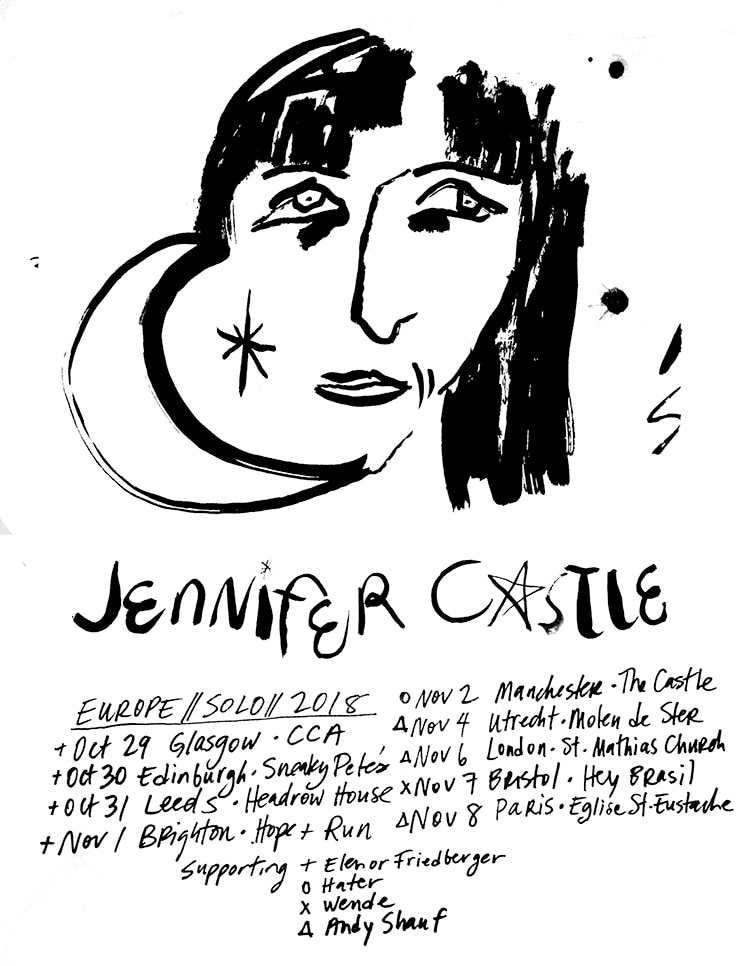 JENNIFER CASTLE
EUROPE//SOLO//2018
+ Oct 29 Glasgow · CCA
+ Oct 30 Edinburgh · Sneaky Pete's
+ Oct 31 Leeds · Headrow House
+ Nov 1 Brighton · Hope + Run
O Nov 2 Manchester · The Castle
Δ Nov 4 Utrecht · Molen de Ster
Δ Nov 6 London · St. Mathias Church
X Nov 7 Bristol · Hey Brasil
Δ Nov 8 Paris · Eglise St-Eustache
Supporting + Elenor Friedberger
O Hater
X Wende
Δ Andy Shauf